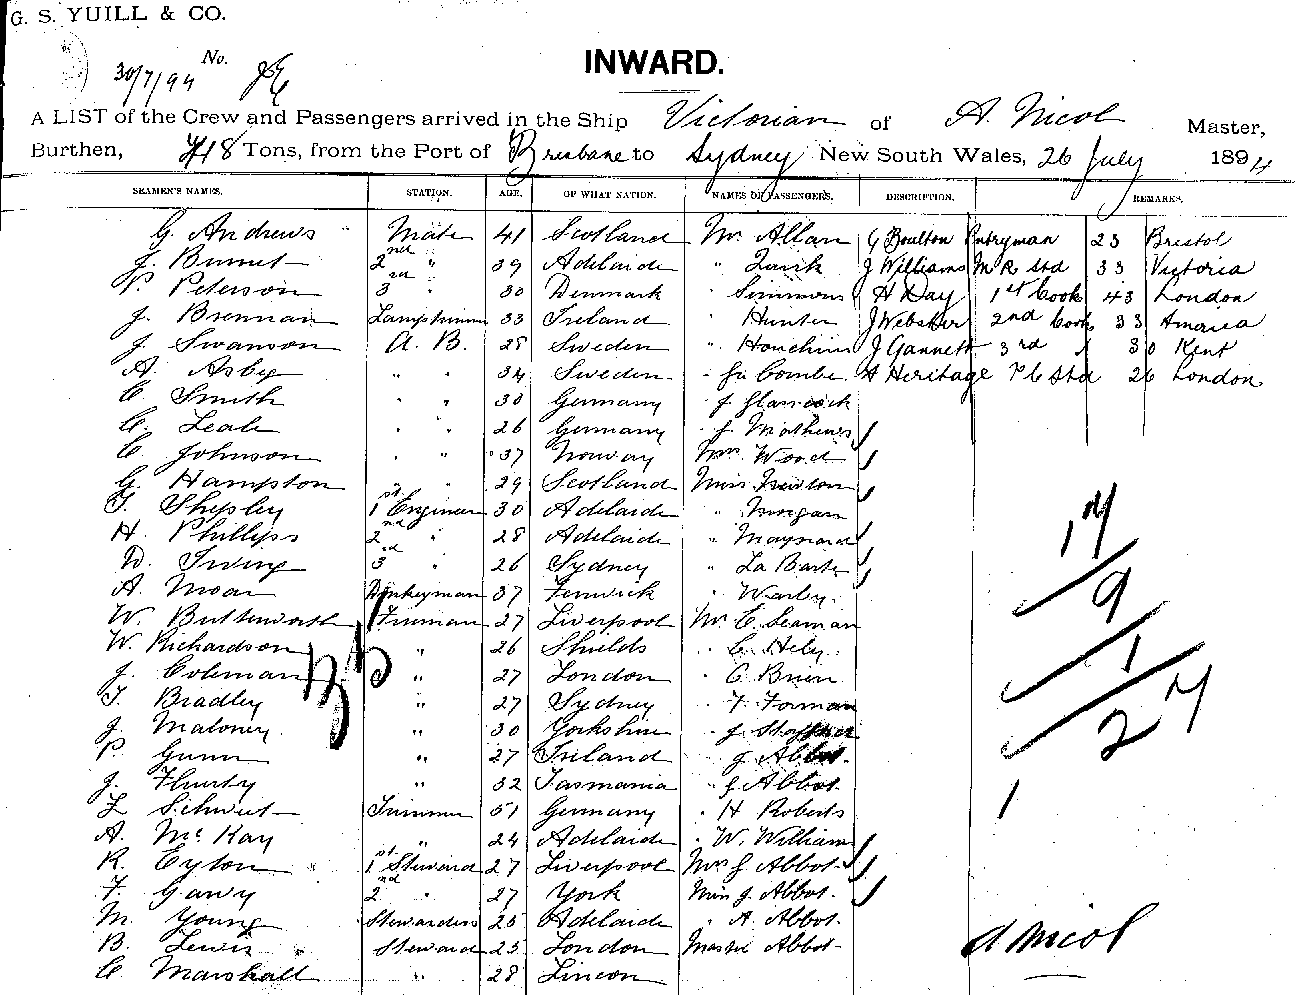 G. S. YUILL & CO.
INWARD.
30/7/94 No.
A LIST of the Crew and Passengers arrived in the Ship Victorian of A. Nicol Master,
Burthen, 718 Tons, from the Port of Brisbane to Sydney New South Wales, 26 July 1894
SEAMEN'S NAMES. STATION. AGE. OF WHAT NATION. NAMES OF PASSENGERS. DESCRIPTION. REMARKS.
G. Andrews Mate 41 Scotland Mr Allan G Boulton Pntryman 23 Bristol
J. 2nd " 39 Adelaide " J Williams M R Std 33 Victoria
P. Peterson 3rd " 30 Denmark " Simmons H Day 1st Cook 43 London
J. Brennan Lamptrimmer 33 Ireland " Hunter J Webster 2nd Cook 33 America
J. Swanson A. B. 28 Sweden " Houchins J Gannett 3rd " 30 Kent
A. Asby " " 34 Sweden " A Heritage Std 26 London
C. Smith " " 30 Germany " J Glascock
C. Leale " " 26 Germany " J Mathews
C. Johnson " " 37 Norway Mrs Wood
G. Hampton " 29 Scotland Miss Newton
T. Shipley 1st Engineer 30 Adelaide "
H. Phillips 2nd " 28 Adelaide " Maynard
D. Irving 3rd " 26 Sydney " La Barte
A. Moar Donkeyman 37 Fenwick " Warby
W. Butterworth Fireman 27 Liverpool Mr E. Seaman
W. Richardson " 26 Shields " C. Hely
J. Coleman " 27 London " O Brien
T. Bradley " 27 Sydney " F. Forman
J. Maloney " 30 Yorkshire " J
P. Gunn " 27 Ireland " J Abbot
J. Flurty " 32 Tasmania " J Abbot
L Schwet Trimmer 51 Germany " H Roberts
A. McKay " 24 Adelaide " W. William
R. Eyton 1st Steward 27 Liverpool Mrs J Abbot
F. Garry 2nd " 27 York Miss J. Abbot
M. Young Stewardess 25 Adelaide " A. Abbot
B. Lewis Steward 25 London Master Abbot
C Marshall " 28 Lincon
17
9
1
27
1
A Nicol